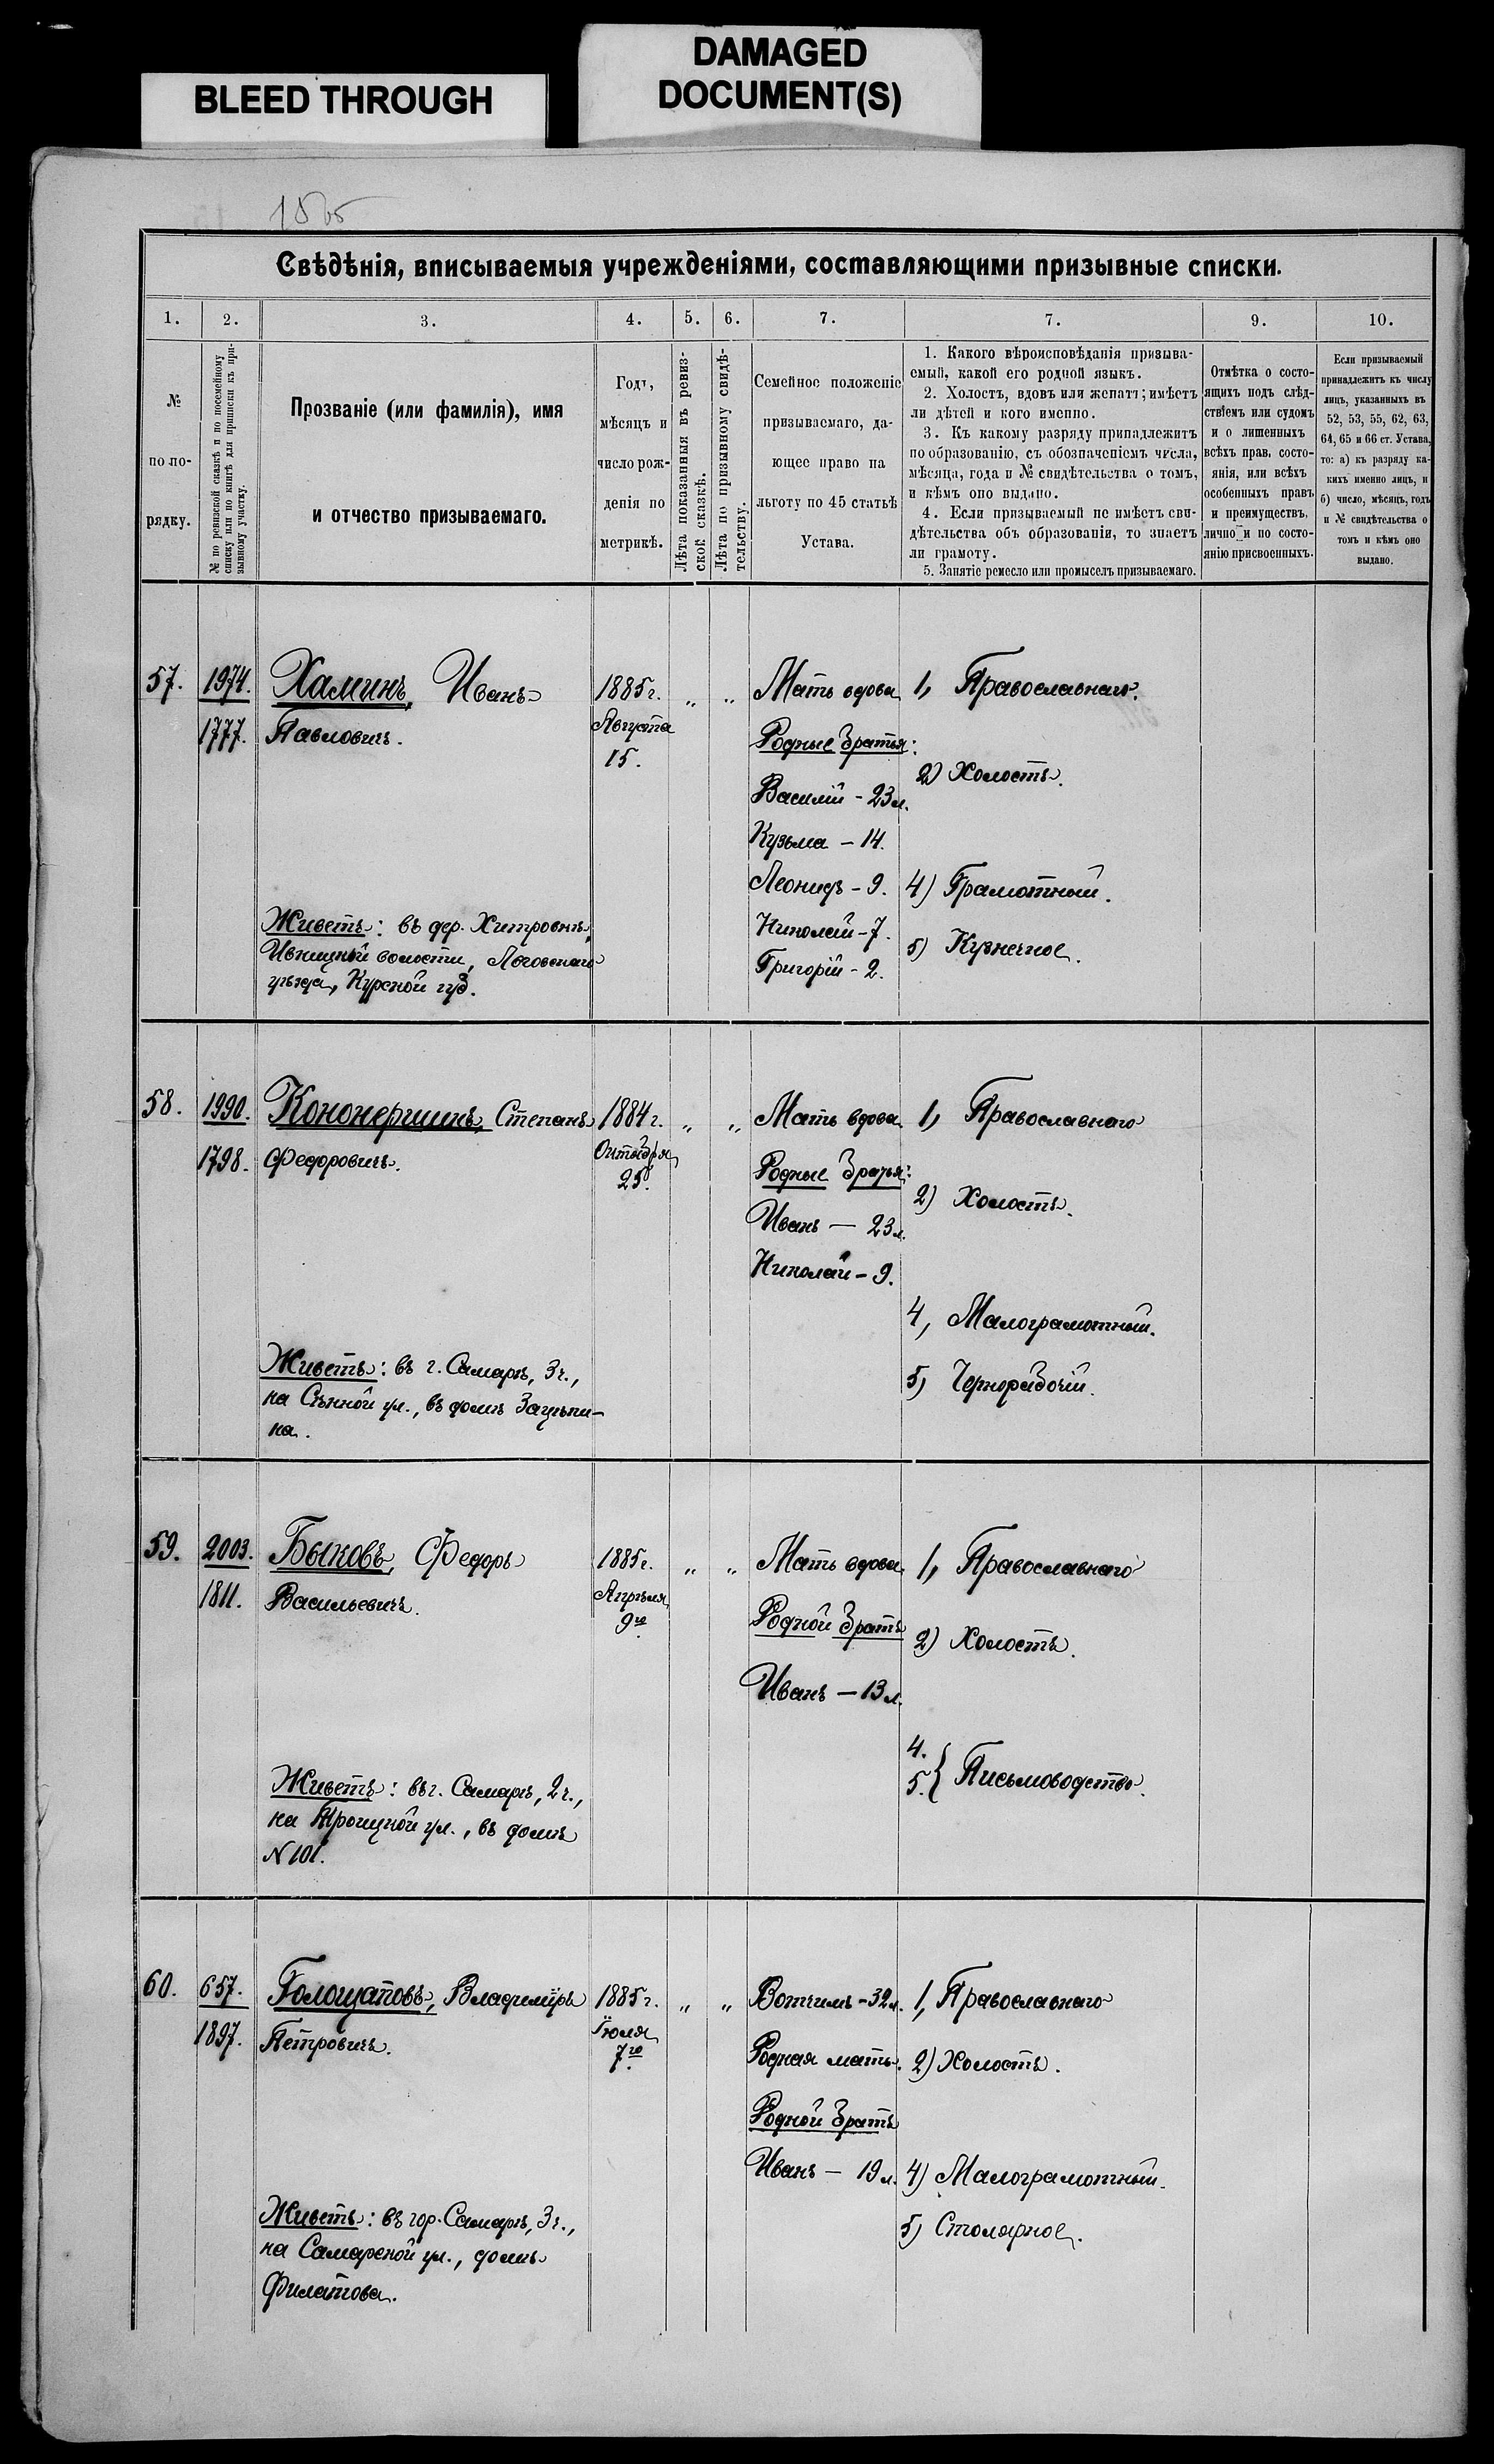 BLEED THROUGH
DAMAGED
DOCUMENT(S)
Свѣдѣнія, вписываемыя учрежденіями, составляющими призывные списки.
1.
2.
3.
4.
5.
6.
7.
7.
9.
10.
№
по по-
рядку.
№ по ревизской сказкѣ и по посемейному
списку или по книгѣ для приписки къ при-
зывному участку.
Прозваніе (или фамилія), имя
и отчество призываемаго.
Годъ,
мѣсяцъ и
число рож-
денія по
метрикѣ.
Лѣта показанныя въ ревиз-
ской сказкѣ.
Лѣта по призывному свидѣ-
тельству.
Семейное положеніе
призываемаго, да-
ющее право на
льготу по 45 статьѣ
Устава.
1. Какого вѣроисповѣданія призыва-
емый, какой его родной языкъ.
2. Холостъ, вдовъ или женатъ; имѣетъ
ли дѣтей и кого именно.
3. Къ какому разряду принадлежитъ
по образованію, съ обозначеніемъ числа,
мѣсяца, года и № свидѣтельства о томъ,
и кѣмъ оно выдано.
4. Если призываемый не имѣетъ сви-
дѣтельства объ образованіи, то знаетъ
ли грамоту.
5. Занятіе ремесло или промыселъ призываемаго.
Отмѣтка о состо-
ящихъ подъ слѣд-
ствіемъ или судомъ
и о лишенныхъ
всѣхъ прав, состо-
янія, или всѣхъ
особенныхъ правъ
и преимуществъ,
лично и по состо-
янію присвоенныхъ.
Если призываемый
принадлежитъ къ числу
лицъ, указанныхъ въ
52, 53, 55, 62, 63,
64, 65 и 66 ст. Устава,
то: а) къ разряду ка-
кихъ именно лицъ, и
б) число, мѣсяцъ, годъ
и № свидѣтельства о
томъ и кѣмъ оно
выдано.
57.
1974.
1777.
Хаминъ, Иванъ
Павловичъ.
Живетъ: въ дер. Хитровкѣ,
Ивницкой волости, Льговскаго
уѣзда, Курской губ.
1885 г.
Августа
15.
" "
Мать вдова
Родные братья:
Василій - 23 л.
Кузьма - 14.
Леонидъ - 9.
Николай - 7.
Григорій - 2.
1, Православнаго.
2) Холостъ.
4) Грамотный.
5) Кузнечное.
58.
1990.
1798.
Кононершинъ, Степанъ
Федоровичъ.
Живетъ: въ г. Самарѣ, 3 ч.,
на Сѣнной ул., въ домѣ Зацѣпи-
на.
1884 г.
Октября
25.
" "
Мать вдова.
Родные братья:
Иванъ — 23 л.
Николай - 9.
1, Православнаго
2) Холостъ.
4, Малограмотный.
5) Чернорабочій.
59.
2003.
1811.
Быковъ, Федоръ
Васильевичъ.
Живетъ: въ г. Самарѣ, 2 ч.,
на Троицкой ул., въ домѣ
N 101.
1885 г.
Апрѣля
9го
" "
Мать вдова.
Родной братъ
Иванъ — 13 л.
1, Православнаго
2) Холостъ.
4.
5. } Письмоводство.
60.
657.
1897.
Голощаповъ, Владиміръ
Петровичъ.
Живетъ: въ гор. Самарѣ, 3 ч.,
на Самарской ул., домъ
Филатова.
1885 г.
Іюля
7го
" "
Вотчимъ - 32 л.
Родная мать.
Родной братъ
Иванъ — 19 л.
1, Православнаго
2) Холостъ.
4) Малограмотный.
5) Столярное.